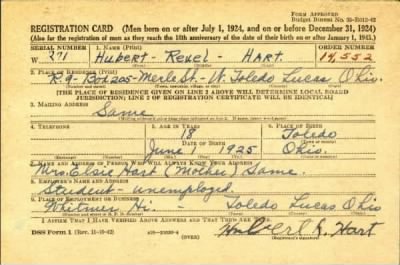 FORM APPROVED
Budget Bureau No. 33-R012-42
REGISTRATION CARD (Men born on or after July 1, 1924, and on or before December 31, 1924)
(Also for the registration of men as they reach the 18th anniversary of the date of their birth on or after January 1, 1943.)
SERIAL NUMBER 1. NAME (Print) ORDER NUMBER
W 271 Hubert - Rexel - Hart. 14,552
2. PLACE OF RESIDENCE (Print)
R.9 - Box 205 - Merle St. - W. Toledo Lucas Ohio.
[THE PLACE OF RESIDENCE GIVEN ON LINE 2 ABOVE WILL DETERMINE LOCAL BOARD
JURISDICTION; LINE 2 OF REGISTRATION CERTIFICATE WILL BE IDENTICAL]
3. MAILING ADDRESS
Same
4. TELEPHONE 5. AGE IN YEARS 6. PLACE OF BIRTH
18 Toledo
DATE OF BIRTH
June 1 1925 Ohio.
7. NAME AND ADDRESS OF PERSON WHO WILL ALWAYS KNOW YOUR ADDRESS
Mrs. Elsie Hart (Mother) Same.
8. EMPLOYER'S NAME AND ADDRESS
Student - unemployed.
9. PLACE OF EMPLOYMENT OR BUSINESS
Whitmer Hi. - Toledo Lucas Ohio
I AFFIRM THAT I HAVE VERIFIED ABOVE ANSWERS AND THAT THEY ARE TRUE.
DSS Form 1 (Rev. 11-16-42) (OVER) Hubert R. Hart
(Registrant's signature)